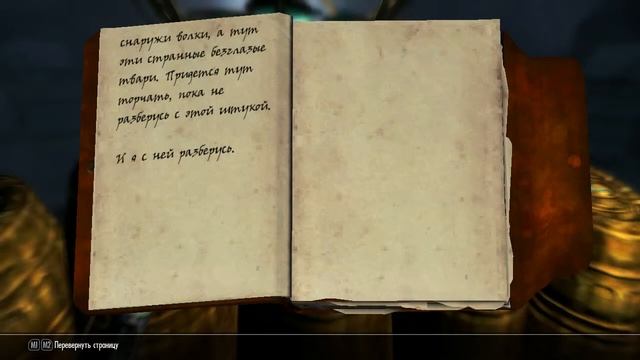 снаружи волки, а тут
эти странные безглазые
твари. Придется тут
торчать, пока не
разберусь с этой штукой.
И я с ней разберусь.
M1 M2 Перевернуть страницу